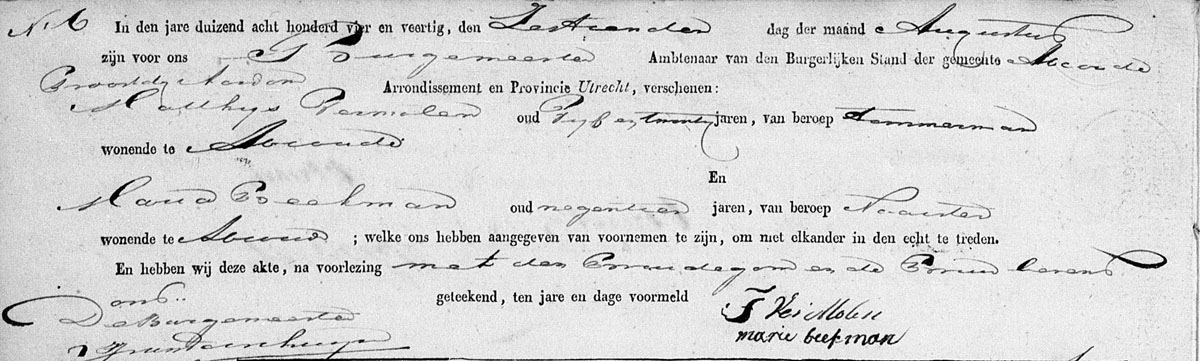 N 6 In den jare duizend acht honderd vier en veertig, den Zestienden dag der maand Augustus
zijn voor ons Burgemeester Ambtenaar van den Burgerlijken Stand der gemeente Abcoude
Proostdy Aasdom Arrondissement en Provincie Utrecht, verschenen:
Matthys Vermolen oud Vyf en twentig jaren, van beroep Temmerman
wonende te Abcoude
En
Maria Beekman oud negentien jaren, van beroep Naaister
wonende te Abcoude ; welke ons hebben aangegeven van voornemen te zijn, om met elkander in den echt te treden.
En hebben wij deze akte, na voorlezing met den Bruidegom en de Bruid benevens
ons geteekend, ten jare en dage voormeld
De Burgemeester
Vermolen
marie beekman